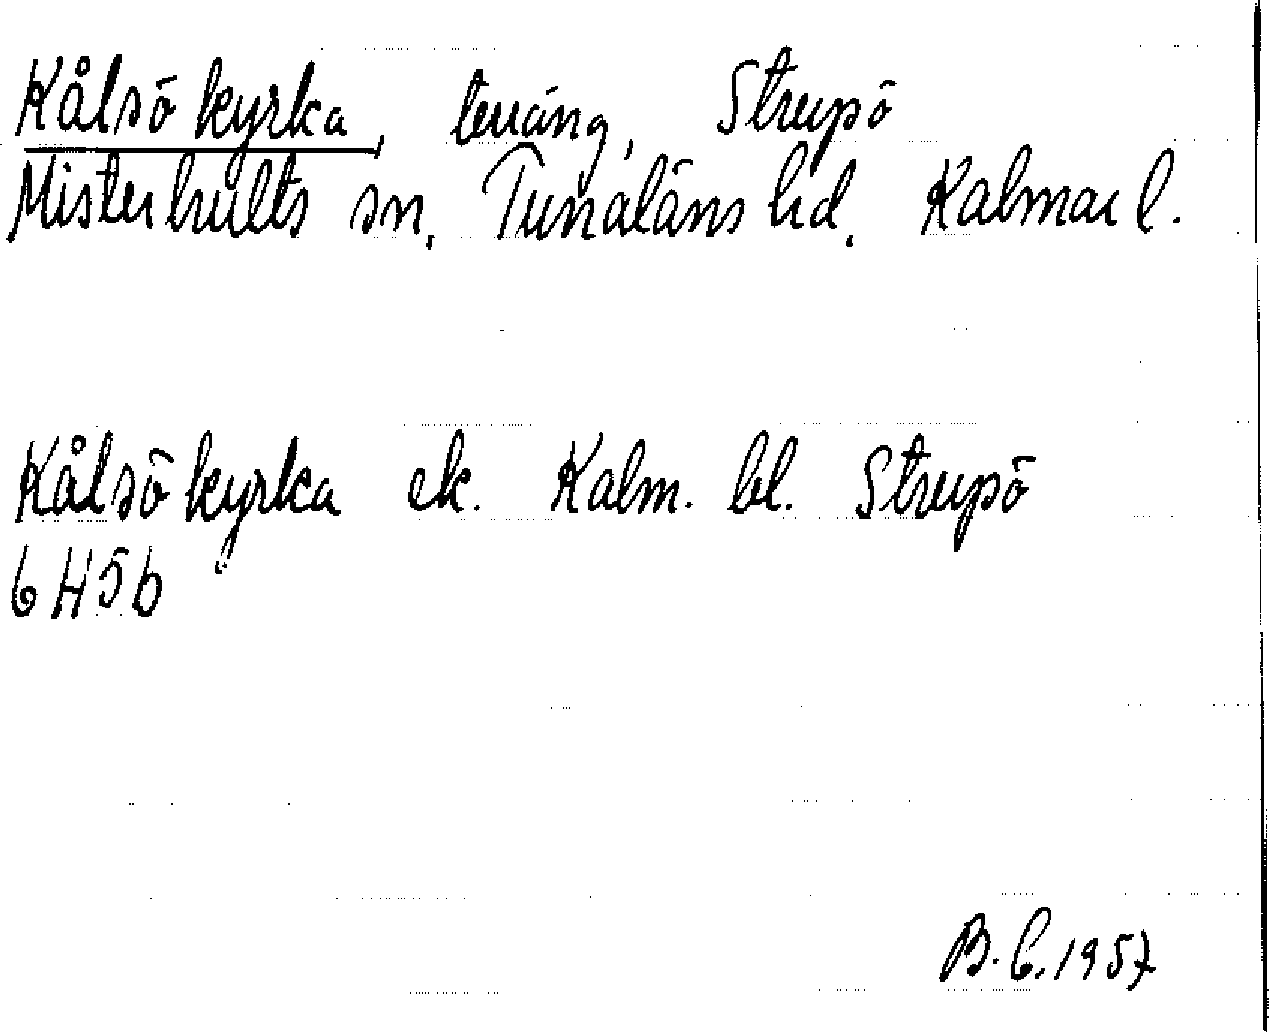 Kålsö kyrka, terräng, Strupö
Misterhults sn, Tunaläns hd, Kalmar l.
Kålsö kyrka ek. Kalm. bl. Strupö
6 H5b
B. C. 1957